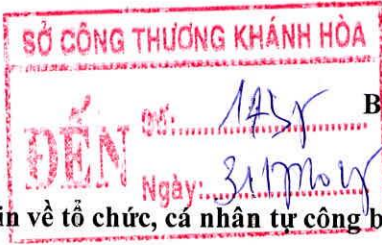 SỞ CÔNG THƯƠNG KHÁNH HÒA
ĐẾN
Số:
B
Ngày:
in về tổ chức, cá nhân tự công b